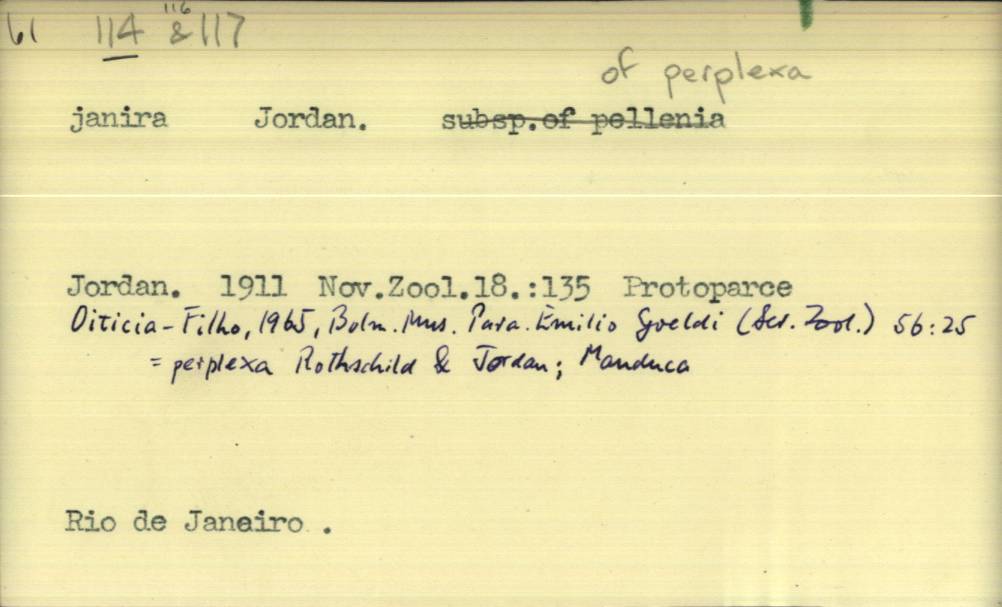 61 114 116 & 117
of perplexa
janira Jordan. subsp.of pellenia
Jordan. 1911 Nov.Zool.18.:135 Protoparce
Oiticia-Filho, 1965, Bolm. Mus. Para. Emilio Goeldi (Ser. Zool.) 56:25
= perplexa Rothschild & Jordan; Manduca
Rio de Janeiro .